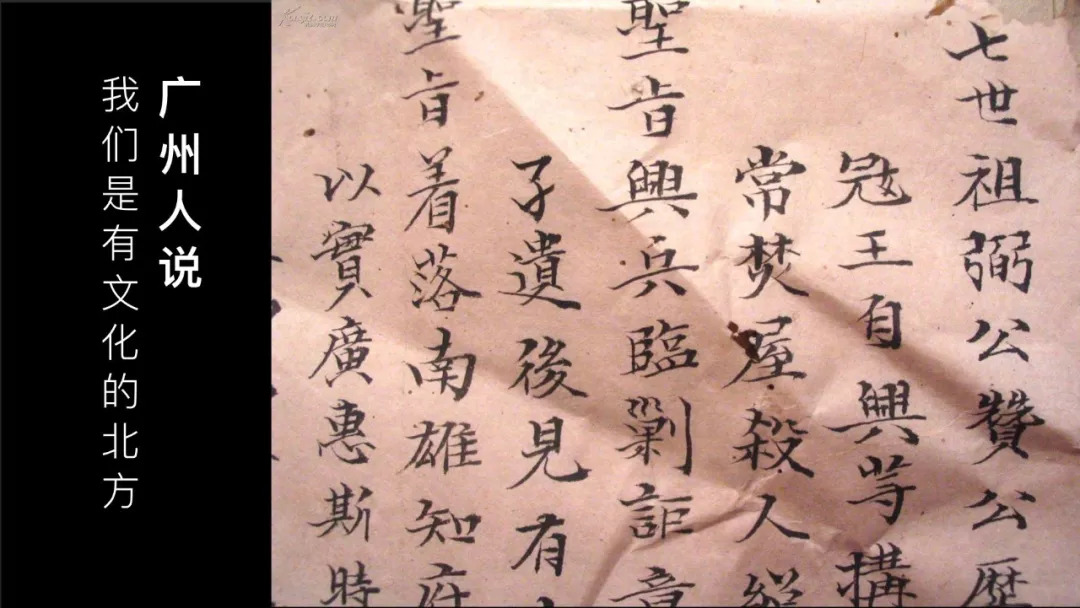 广州人说
我们是有文化的北方
七世祖弼公贊公歷
冦王自興等搆
常焚屋殺人縱
聖旨興兵臨剿詎意
子遺後見有
聖旨着落南雄知府
以實廣惠斯時